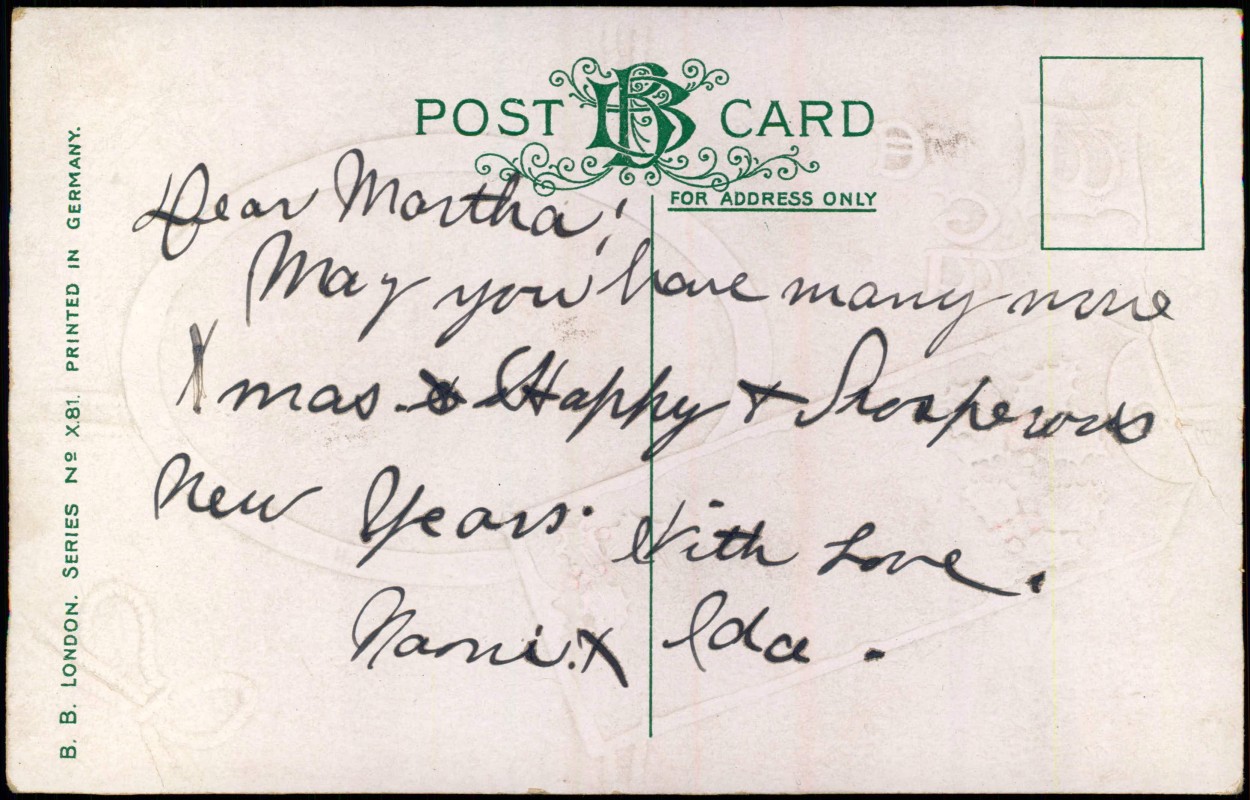 POST BB CARD
FOR ADDRESS ONLY
Dear Martha!
May you have many more
Xmas. & Happy & Prosperous
New Years. With Love.
Ida.
B. B. LONDON. SERIES No X.81. PRINTED IN GERMANY.